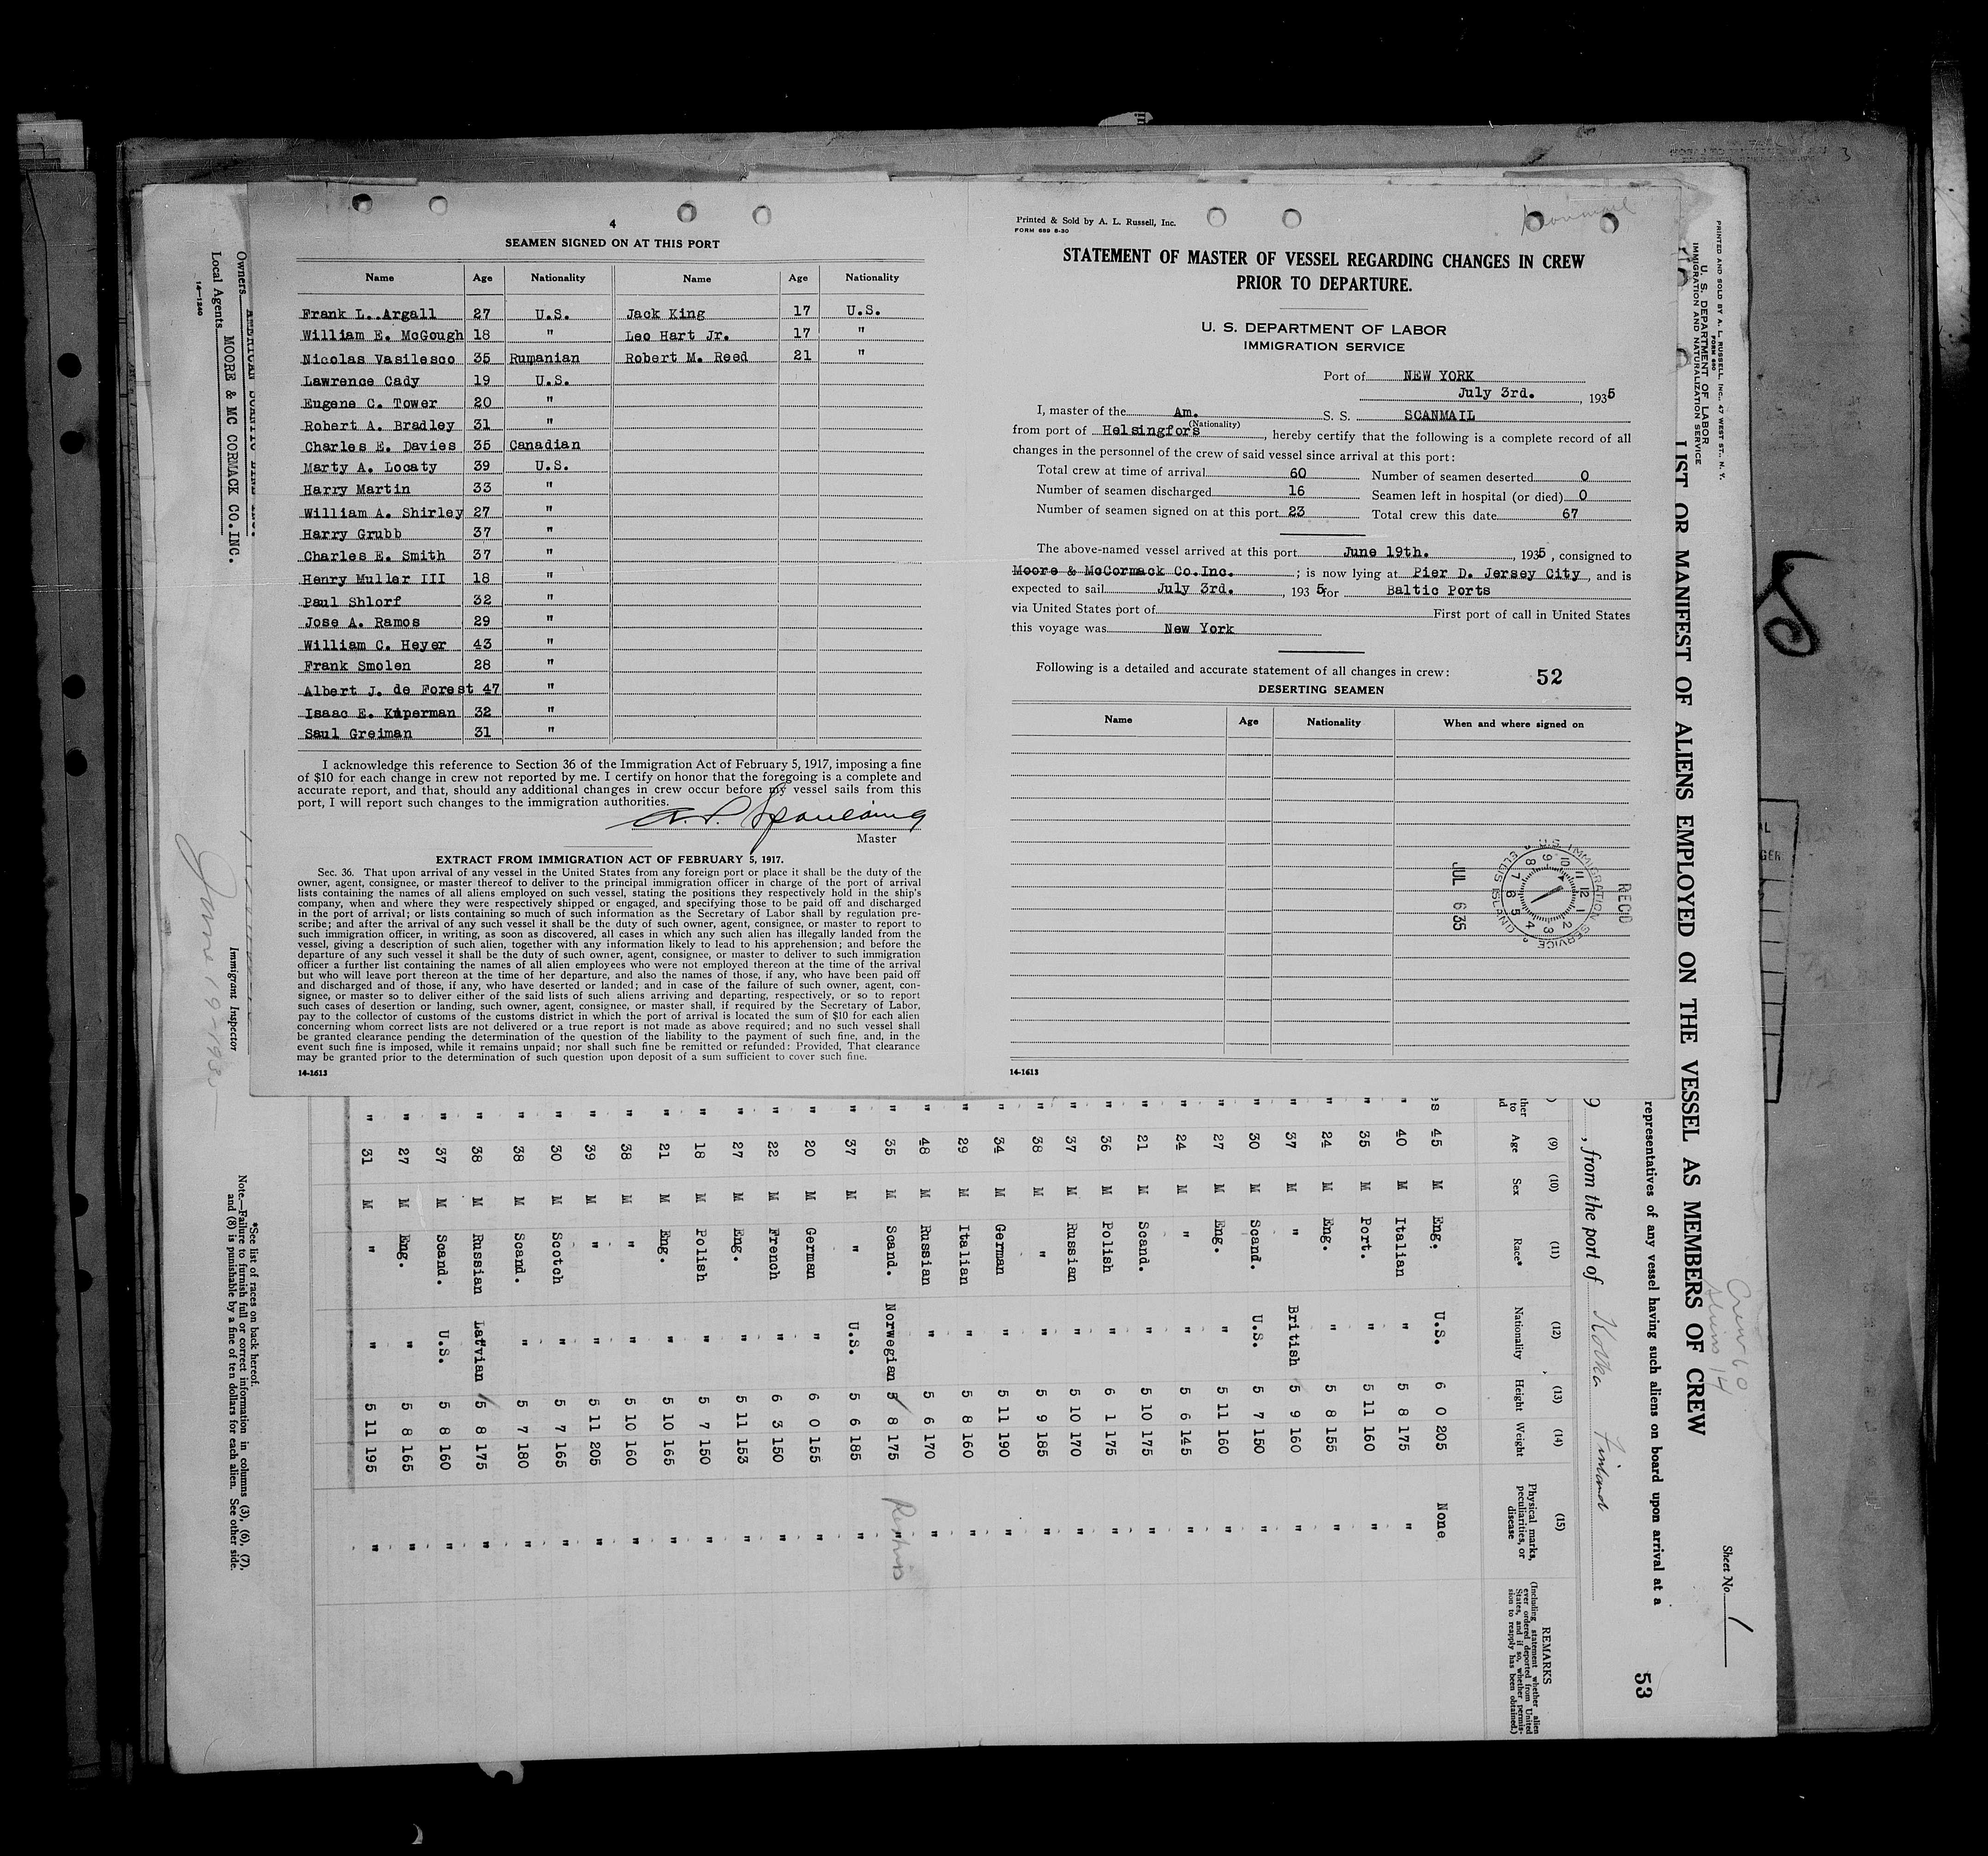 4
SEAMEN SIGNED ON AT THIS PORT
Name Age Nationality Name Age Nationality
Frank L. Argall 27 U.S. Jack King 17 U.S.
William E. McGough 18 " Leo Hart Jr. 17 "
Nicolas Vasilesco 35 Rumanian Robert M. Reed 21 "
Lawrence Cady 19 U.S.
Eugene C. Tower 20 "
Robert A. Bradley 31 "
Charles E. Davies 35 Canadian
Marty A. Locaty 39 U.S.
Harry Martin 33 "
William A. Shirley 27 "
Harry Grubb 37 "
Charles E. Smith 37 "
Henry Muller III 18 "
Paul Shlorf 32 "
Jose A. Ramos 29 "
William C. Heyer 43 "
Frank Smolen 28 "
Albert J. de Forest 47 "
Isaac E. Kuperman 32 "
Saul Greiman 31 "
I acknowledge this reference to Section 36 of the Immigration Act of February 5, 1917, imposing a fine
of $10 for each change in crew not reported by me. I certify on honor that the foregoing is a complete and
accurate report, and that, should any additional changes in crew occur before my vessel sails from this
port, I will report such changes to the immigration authorities.
Master
EXTRACT FROM IMMIGRATION ACT OF FEBRUARY 5, 1917.
Sec. 36. That upon arrival of any vessel in the United States from any foreign port or place it shall be the duty of the
owner, agent, consignee, or master thereof to deliver to the principal immigration officer in charge of the port of arrival
lists containing the names of all aliens employed on such vessel, stating the positions they respectively hold in the ship's
company, when and where they were respectively shipped or engaged, and specifying those to be paid off and discharged
in the port of arrival; or lists containing so much of such information as the Secretary of Labor shall by regulation pre-
scribe; and after the arrival of any such vessel it shall be the duty of such owner, agent, consignee, or master to report to
such immigration officer, in writing, as soon as discovered, all cases in which any such alien has illegally landed from the
vessel, giving a description of such alien, together with any information likely to lead to his apprehension; and before the
departure of any such vessel it shall be the duty of such owner, agent, consignee, or master to deliver to such immigration
officer a further list containing the names of all alien employees who were not employed thereon at the time of the arrival
but who will leave port thereon at the time of her departure, and also the names of those, if any, who have been paid off
and discharged and of those, if any, who have deserted or landed; and in case of the failure of such owner, agent, con-
signee, or master so to deliver either of the said lists of such aliens arriving and departing, respectively, or so to report
such cases of desertion or landing, such owner, agent, consignee, or master shall, if required by the Secretary of Labor,
pay to the collector of customs of the customs district in which the port of arrival is located the sum of $10 for each alien
concerning whom correct lists are not delivered or a true report is not made as above required; and no such vessel shall
be granted clearance pending the determination of the question of the liability to the payment of such fine, and, in the
event such fine is imposed, while it remains unpaid; nor shall such fine be remitted or refunded: Provided, That clearance
may be granted prior to the determination of such question upon deposit of a sum sufficient to cover such fine.
14-1613
Printed & Sold by A. L. Russell, Inc.
FORM 689 8-30
STATEMENT OF MASTER OF VESSEL REGARDING CHANGES IN CREW
PRIOR TO DEPARTURE.
U. S. DEPARTMENT OF LABOR
IMMIGRATION SERVICE
Port of NEW YORK
July 3rd. , 1935
I, master of the Am. S. S. SCANMAIL
(Nationality)
from port of Helsingfors , hereby certify that the following is a complete record of all
changes in the personnel of the crew of said vessel since arrival at this port:
Total crew at time of arrival 60 Number of seamen deserted 0
Number of seamen discharged 16 Seamen left in hospital (or died) 0
Number of seamen signed on at this port 23 Total crew this date 67
The above-named vessel arrived at this port June 19th. , 1935, consigned to
Moore & McCormack Co.Inc. ; is now lying at Pier D. Jersey City , and is
expected to sail July 3rd. , 193 5 for Baltic Ports
via United States port of First port of call in United States
this voyage was New York
Following is a detailed and accurate statement of all changes in crew:
52
DESERTING SEAMEN
Name Age Nationality When and where signed on
REC'D
U.S. IMMIGRATION SERVICE
ELLIS ISLAND
JUL 6 35
14-1613
PRINTED AND SOLD BY A. L. RUSSELL, INC., 47 WEST ST., N. Y.
FORM 680
U. S. DEPARTMENT OF LABOR
IMMIGRATION AND NATURALIZATION SERVICE
LIST OR MANIFEST OF ALIENS EMPLOYED ON THE VESSEL AS MEMBERS OF CREW
Sheet No. 1
Crew 60
Aliens 14
representatives of any vessel having such aliens on board upon arrival at a
53
9 , from the port of Kotka Finland
(9) (10) (11) (12) (13) (14) (15)
Age Sex Race* Nationality Height Weight Physical marks, peculiarities, or disease
REMARKS
(Including statement whether alien
ever ordered deported from United
States, and if so, whether permis-
sion to reapply has been obtained.)
es 45 M Eng. U.S. 6 0 205 None
" 40 M Italian " 5 8 175 "
" 35 M Port. " 5 11 160 "
" 24 M Eng. " 5 8 155 "
" 37 M " British 5 9 160 "
" 30 M Scand. U.S. 5 7 150 "
" 27 M Eng. " 5 11 160 "
" 24 M " " 5 6 145 "
" 21 M Scand. " 5 10 175 "
" 36 M Polish " 6 1 175 "
" 37 M Russian " 5 10 170 "
" 38 M " " 5 9 185 "
" 34 M German " 5 11 190 "
" 29 M Italian " 5 8 160 "
" 48 M Russian " 5 6 170 "
" 35 M Scand. Norwegian 5 8 175 "
" 37 M " U.S. 5 6 185 "
" 20 M German " 6 0 155 "
" 22 M French " 6 3 150 "
" 27 M Eng. " 5 11 153 "
" 18 M Polish " 5 7 150 "
" 21 M Eng. " 5 10 165 "
" 38 M " " 5 10 160 "
" 39 M " " 5 11 205 "
" 30 M Scotch " 5 7 165 "
" 38 M Scand. " 5 7 180 "
" 38 M Russian Latvian 5 8 175 "
" 37 M Scand. U.S. 5 8 160 "
" 27 M Eng. " 5 8 165 "
" 31 M " " 5 11 195 "
*See list of races on back hereof.
Note.—Failure to furnish full or correct information in columns (3), (6), (7),
and (8) is punishable by a fine of ten dollars for each alien. See other side.
Immigrant Inspector
Owners
Local Agents MOORE & MC CORMACK CO.INC.
14-1240